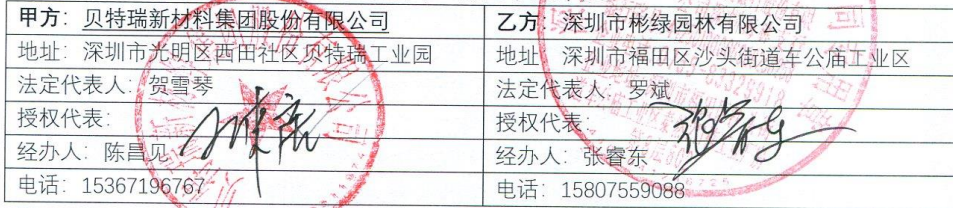 甲方：贝特瑞新材料集团股份有限公司
乙方：深圳市彬绿园林有限公司
地址：深圳市光明区西田社区贝特瑞工业园
地址：深圳市福田区沙头街道车公庙工业区
法定代表人：贺雪琴
法定代表人：罗斌
授权代表：
授权代表：
经办人：陈昌见
经办人：张睿东
电话：15367196767
电话：15807559088